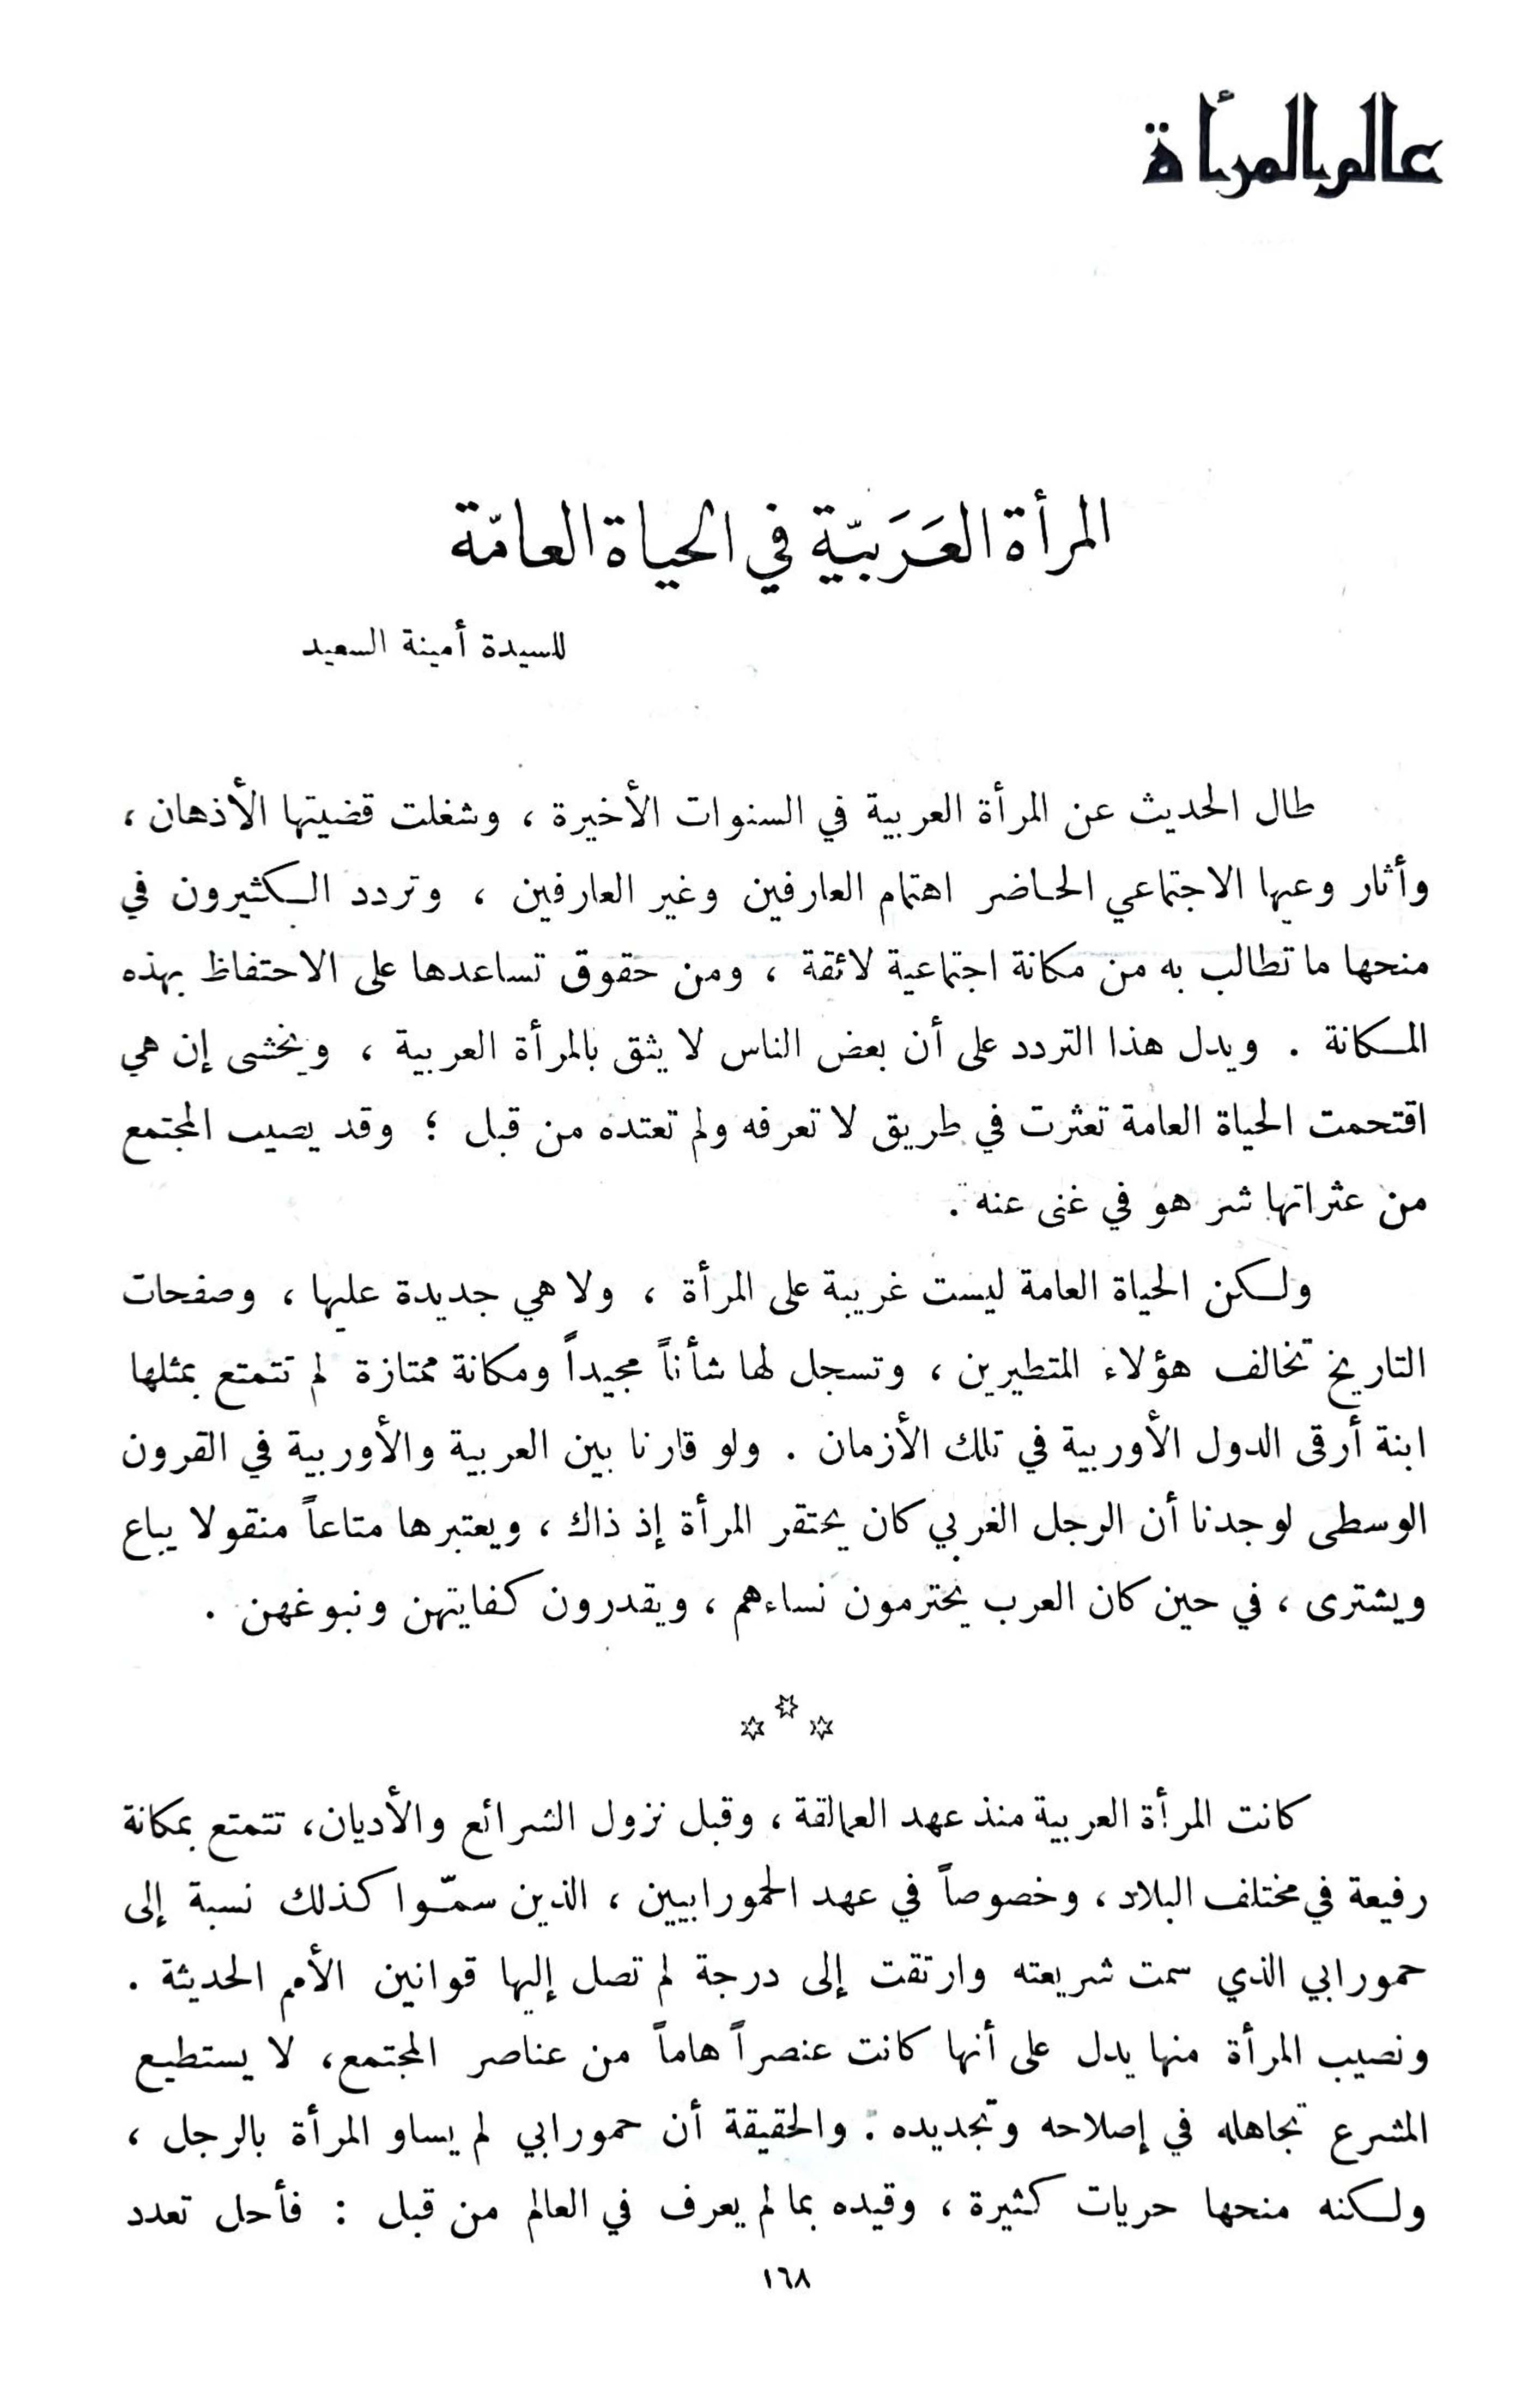 عالم المرأة
المرأة العَرَبيّة في الحياة العامّة
للسيدة أمينة السعيد
طال الحديث عن المرأة العربية في السنوات الأخيرة ، وشغلت قضيتها الأذهان ،
وأثار وعيها الاجتماعي الحاضر اهتمام العارفين وغير العارفين ، وتردد الكثيرون في
منحها ما تطالب به من مكانة اجتماعية لائقة ، ومن حقوق تساعدها على الاحتفاظ بهذه
المكانة . ويدل هذا التردد على أن بعض الناس لا يثق بالمرأة العربية ، ويخشى إن هي
اقتحمت الحياة العامة تعثرت في طريق لا تعرفه ولم تعتده من قبل ؛ وقد يصيب المجتمع
من عثراتها شر هو في غنى عنه .
ولكن الحياة العامة ليست غريبة على المرأة ، ولا هي جديدة عليها ، وصفحات
التاريخ تخالف هؤلاء المتطيرين ، وتسجل لها شأناً مجيداً ومكانة ممتازة لم تتمتع بمثلها
ابنة أرقى الدول الأوربية في تلك الأزمان . ولو قارنا بين العربية والأوربية في القرون
الوسطى لوجدنا أن الرجل الغربي كان يحتقر المرأة إذ ذاك ، ويعتبرها متاعاً منقولا يباع
ويشترى ، في حين كان العرب يحترمون نساءهم ، ويقدرون كفايتهن ونبوغهن .
* * *
كانت المرأة العربية منذ عهد العمالقة ، وقبل نزول الشرائع والأديان، تتمتع بمكانة
رفيعة في مختلف البلاد ، وخصوصاً في عهد الحمورابيين ، الذين سمّوا كذلك نسبة إلى
حمورابي الذي سمت شريعته وارتقت إلى درجة لم تصل إليها قوانين الأمم الحديثة .
ونصيب المرأة منها يدل على أنها كانت عنصراً هاماً من عناصر المجتمع، لا يستطيع
المشرع تجاهله في إصلاحه وتجديده . والحقيقة أن حمورابي لم يساو المرأة بالرجل ،
ولكنه منحها حريات كثيرة ، وقيده بما لم يعرف في العالم من قبل : فأحل تعدد
١٦٨